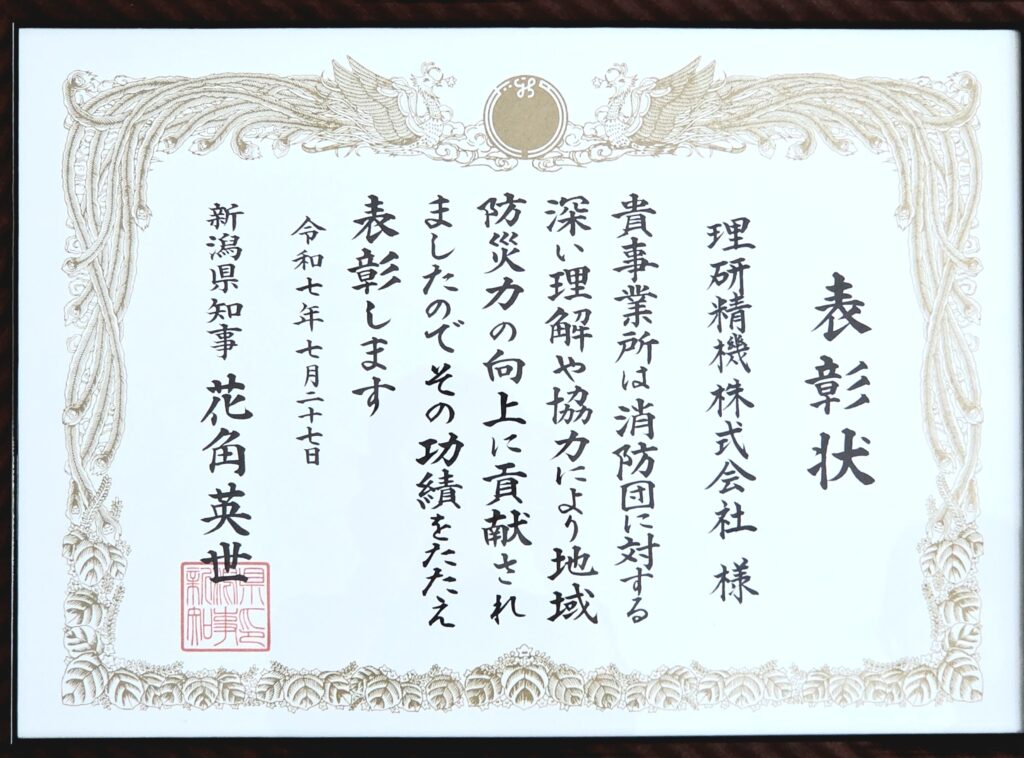 表彰状
理研精機株式会社 様
貴事業所は消防団に対する
深い理解や協力により地域
防災力の向上に貢献され
ましたのでその功績をたたえ
表彰します
令和七年七月二十七日
新潟県知事 花角英世